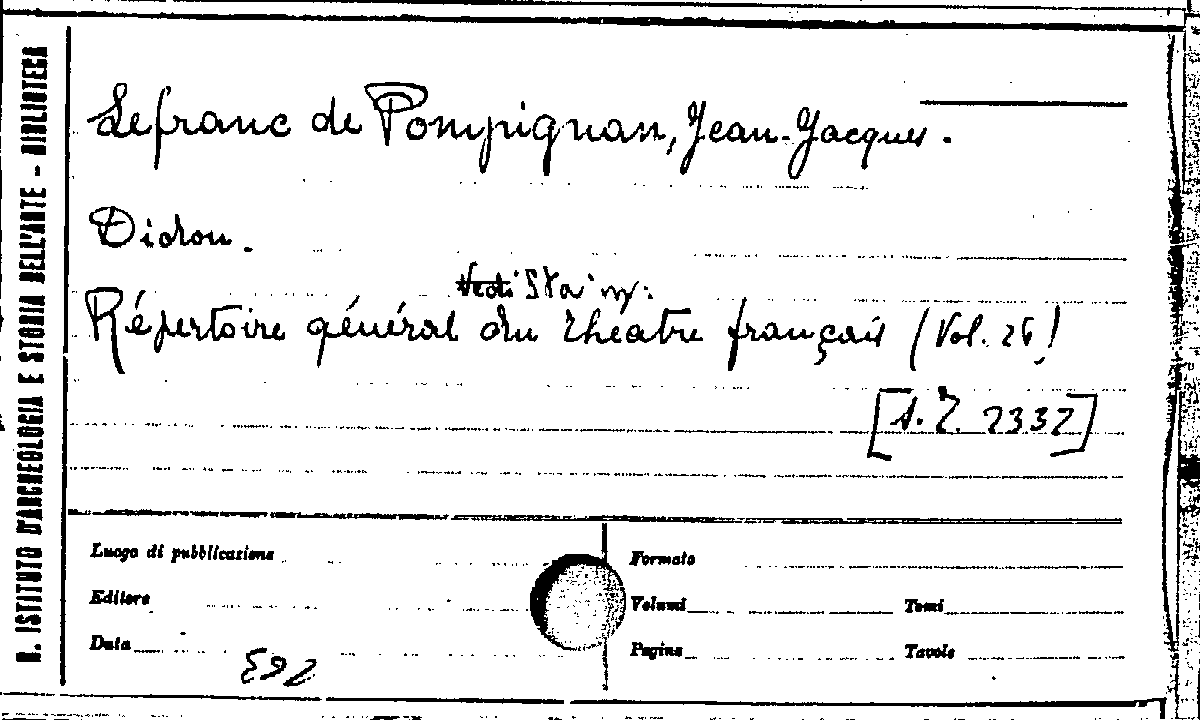 R. ISTITUTO D'ARCHEOLOGIA E STORIA DELL'ARTE - BIBLIOTECA
Lefranc de Pompignan, Jean-Jacques.
Didon.
Vedi
Répertoire général du théatre français (Vol. 26)
[A. Z. 2332]
Luogo di pubblicazione
Formato
Editore
Volumi
Tomi
Data
Pagine
Tavole